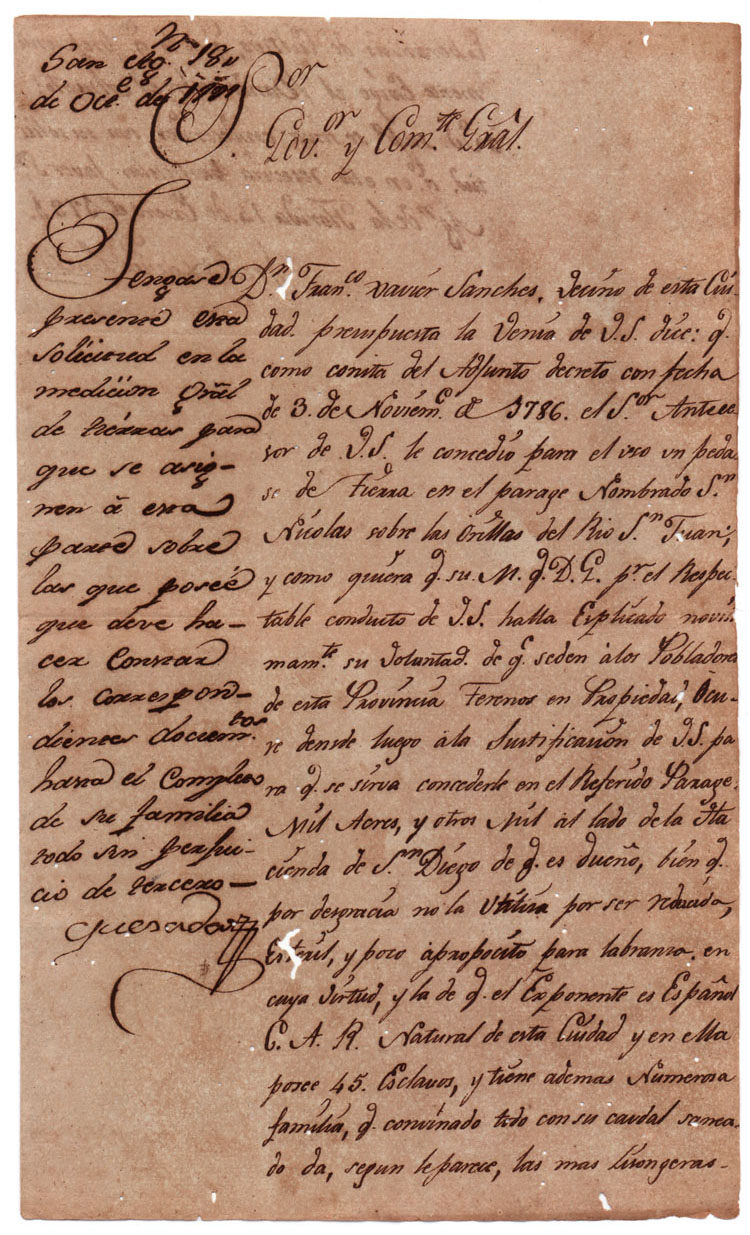 San Ag.n 18
de Oct.e de
S.or
Gov.or y Com.te Gral.
Tengase
presente esta
solicitud en la
medicion Gral
de tierras para
que se asig-
nen à esta
parte sobre
las que posée
que deve ha-
cer Constar
los correspon-
dientes docum.tos
hasta el Completo
de su familia
todo sin perjui-
cio de tercero-
Quesada
D.n Fran.co Xavier Sanches, Vecino de esta Ciu-
dad. presupuesta la Venia de V.S. dice: q.
como consta del Adjunto decreto con fecha
de 3. de Noviem.e de 1786. el S.or Antece
sor de V.S. le concedio para el uso un peda
so de Tierra en el parage Nombrado S.n
Nicolas sobre las Orillas del Rio S.n Juan;
y como quiera q. su M. q. D. G. p.r el Respec
table conducto de V.S. halla Explicado novisi
mam.te su Voluntad. de q. se den à los Pobladores
de esta Provincia Terenos en Propiedad, Ocu-
re desde luego à la Justificacion de V.S. pa
ra q. se sirva concederle en el Referido Parage.
Mil Acres, y otros Mil al lado de la Ha
cienda de S.n Diego de q. es dueño, bien q.
por desgracia no la Utiliza por ser reducida,
Esteril, y poco àpropocito para labranza. en
cuya Virtud, y la de q. el Exponente es Español
C. A. R. Natural de esta Ciudad y en ella
posee 45. Esclavos, y tiene ademas Numerosa
familia, q. convinado todo con su caudal sanea-
do da, segun le parece, las mas lisongeras-